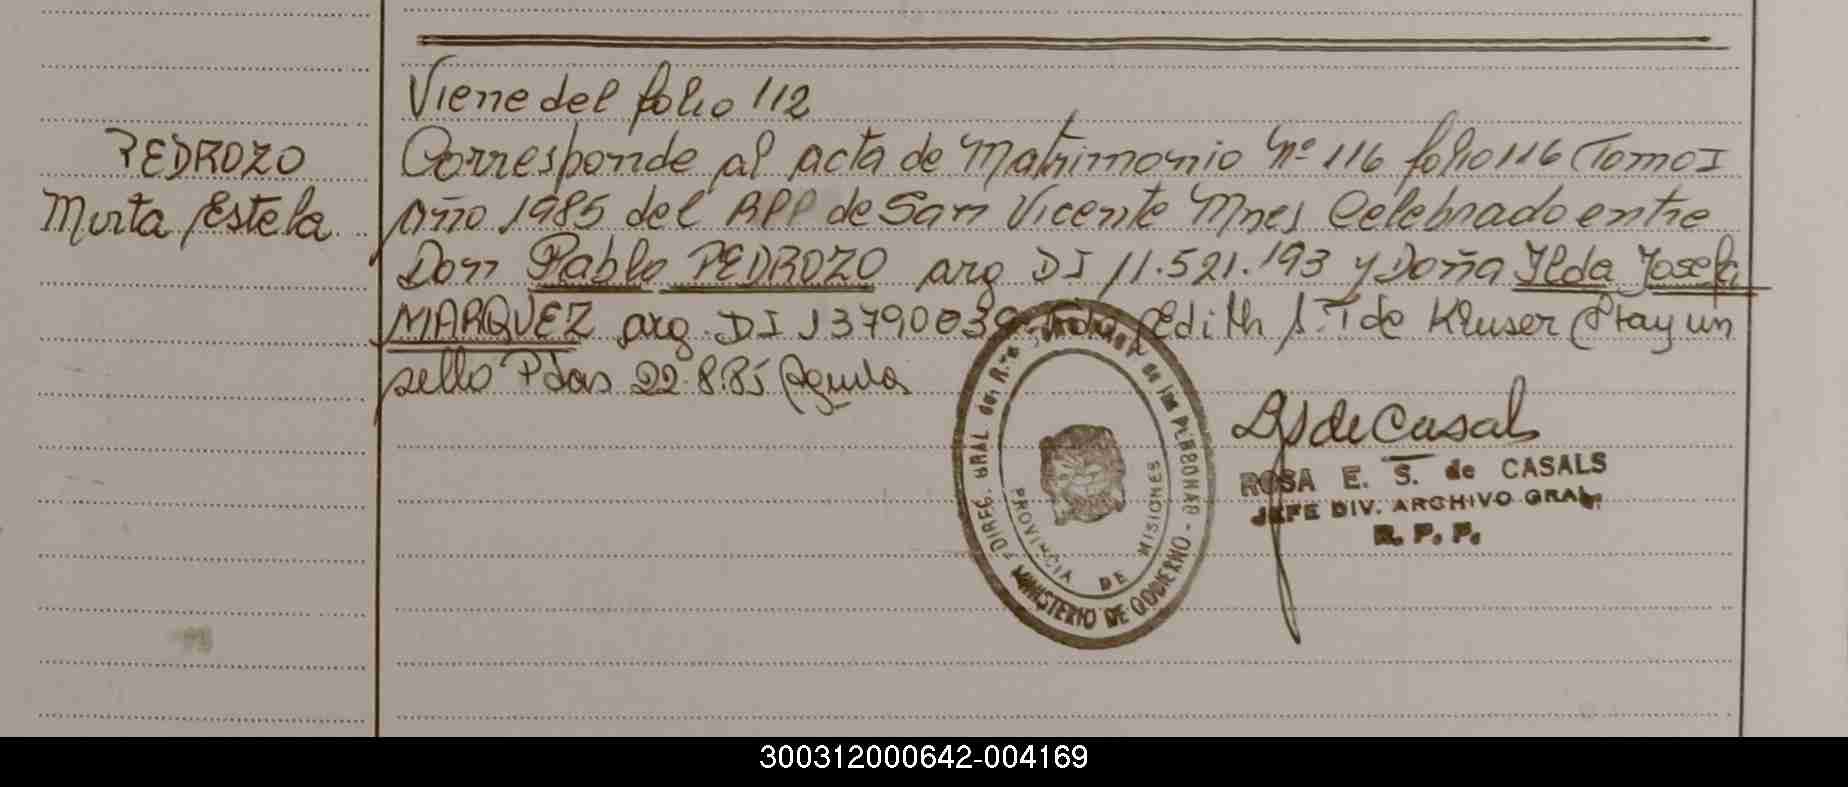 Viene del folio 112
PEDROZO
Mirta Estela
Corresponde al acta de Matrimonio Nº 116 folio 116 Tomo I
Año 1985 del RPP de San Vicente Mnes Celebrado entre
Don Pablo PEDROZO arg DI 11.521.193 y Doña Ilda Josefa
MARQUEZ arg. DI 13790039 Edith S. T de Kluser Hay un
sello Pdas 22.8.85
DIREC. GRAL del Rtro de las PERSONAS - MINISTERIO DE GOBIERNO
PROVINCIA DE MISIONES
de Casals
ROSA E. S. de CASALS
JEFE DIV. ARCHIVO GRAL.
R. P. P.
300312000642-004169